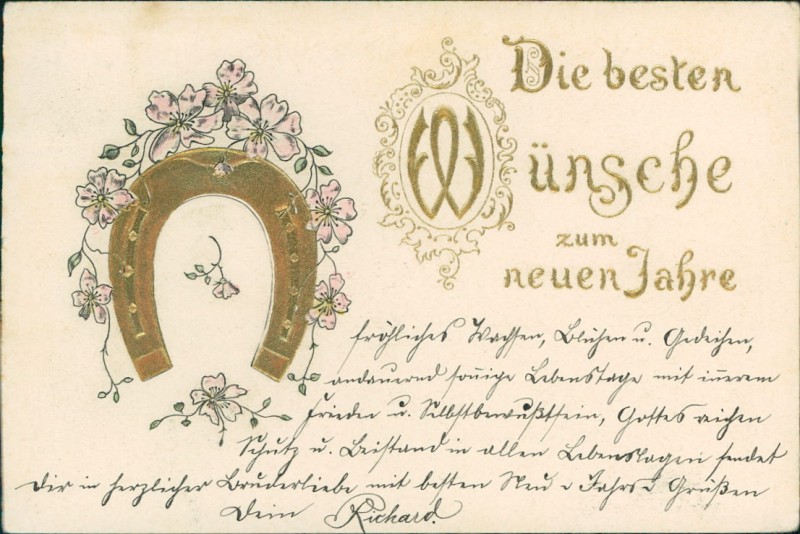 Die besten
Wünsche
zum
neuen Jahre
fröhliches Wachsen, Blühen u. Gedeihen,
andauernd sonnige Lebenstage mit innerem
Frieden u. Selbstbewußtsein, Gottes reichen
Schutz u. Beistand in allen Lebenslagen sendet
Dir in herzlicher Bruderliebe mit besten Neu-Jahrs-Grüßen
Dein Richard.